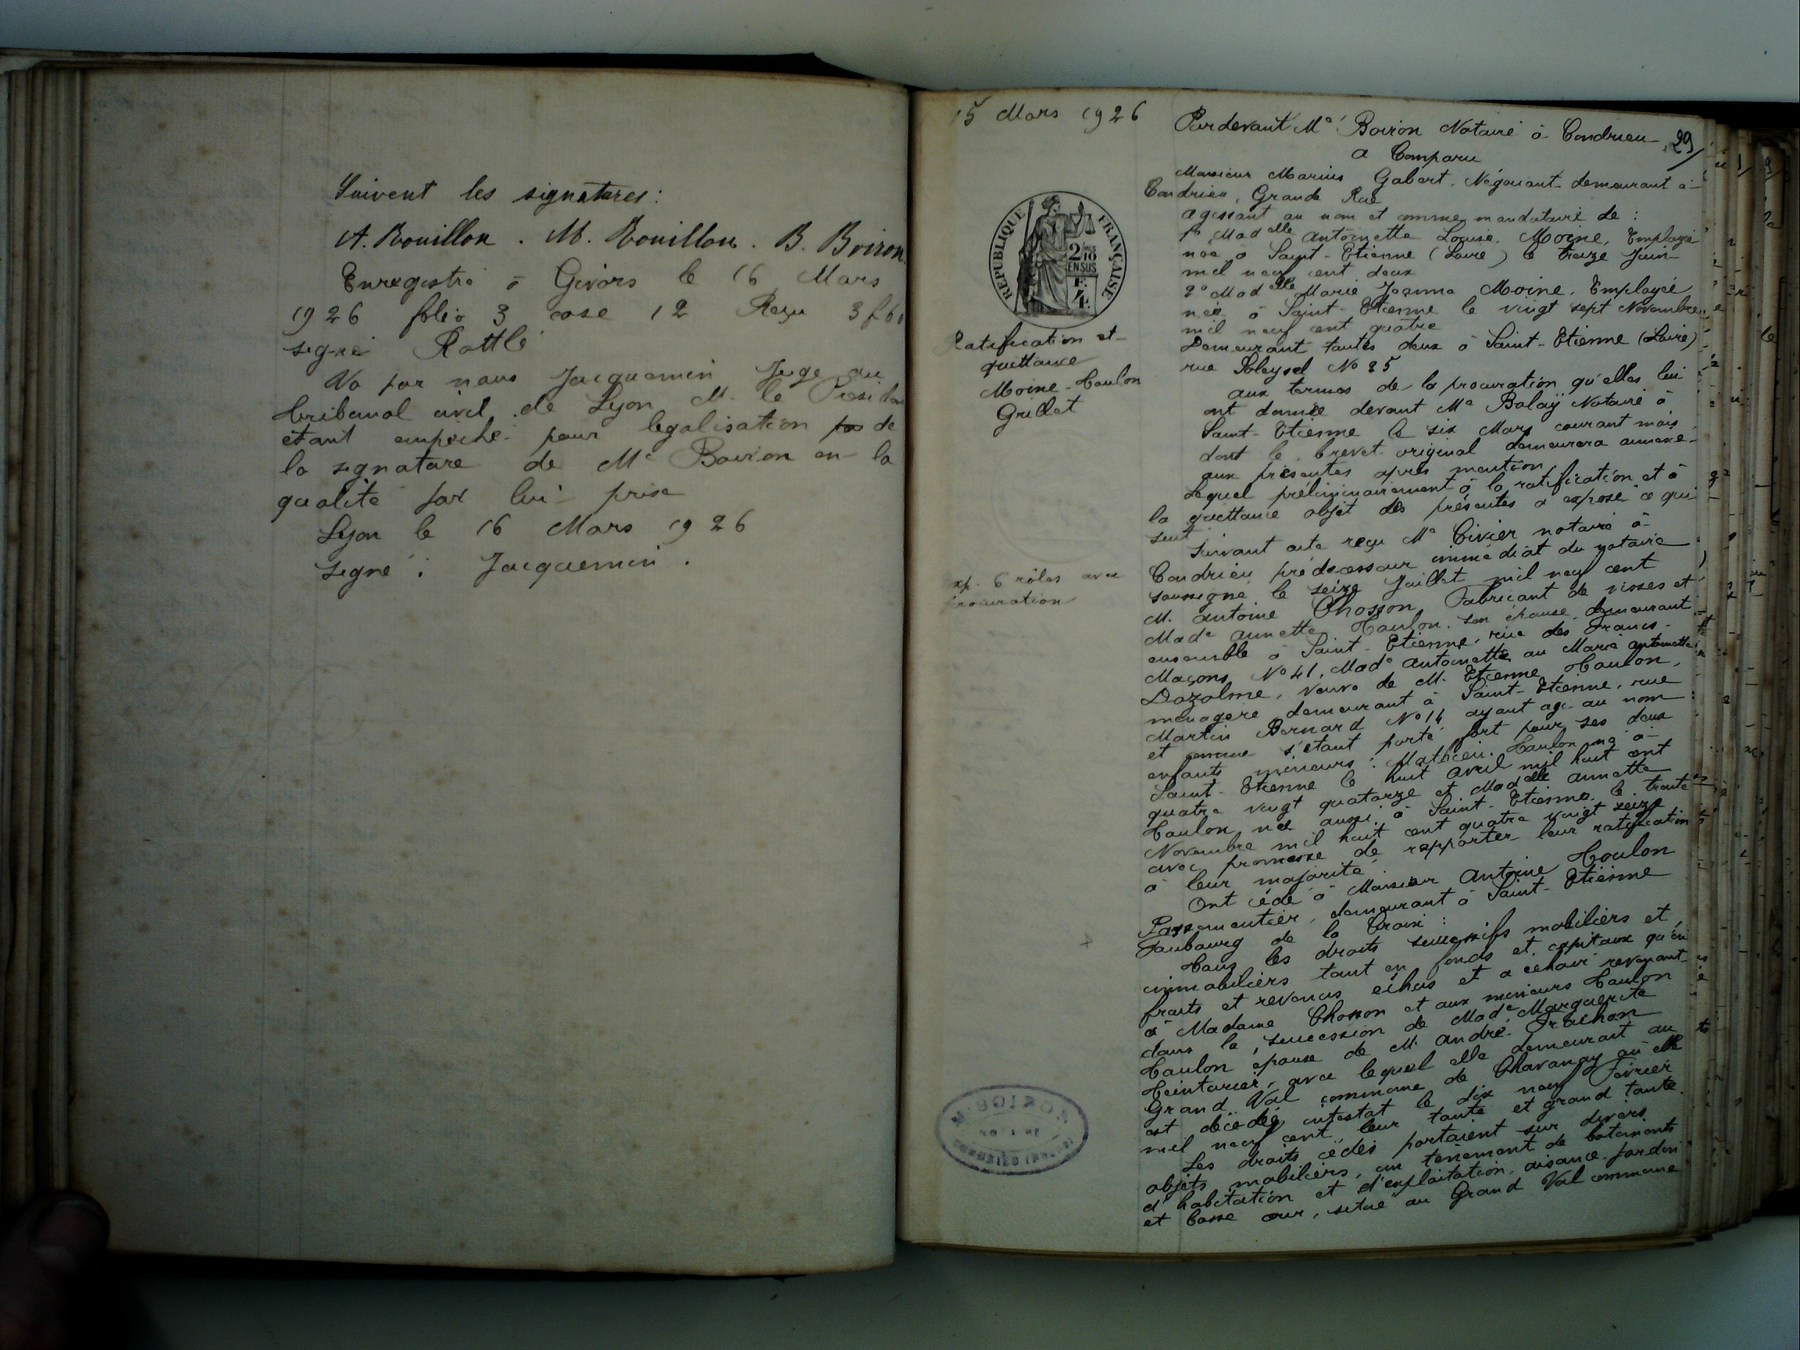 Suivent les signatures :
A. Bouillon . M. Bouillon . B. Boiron
Enregistré à Givors le 16 Mars
1926 folio 3 case 12 Reçu 3f60
signé Rattle
Vu par nous Jacquemin Juge au
tribunal civil de Lyon M. le Présiden
étant empêché pour légalisation de
la signature de Me Boiron en la
qualité par lui prise
Lyon le 16 Mars 1926
Signé : Jacquemin .
15 Mars 1926
RÉPUBLIQUE FRANÇAISE
Ratification et
quittance
Moine - Haulon
Grillet
6 rôles avec
procuration
29
Pardevant Me Boiron Notaire à Condrieu
a Comparu
Monsieur Marius Gabert, Négociant demeurant à
Condrieu, Grande Rue
agissant au nom et comme mandataire de :
1° Madelle Antoinette Louise Moine, Employée
née à Saint-Etienne (Loire) le treize Juin
mil neuf cent deux
2° Madelle Marie Jeanne Moine, Employée
née à Saint-Etienne le vingt sept Novembre
mil neuf cent quatre
Demeurant toutes deux à Saint-Etienne (Loire)
rue Soleysel No 25
aux termes de la procuration qu'elles lui
ont donnée devant Me Balaÿ Notaire à
Saint-Etienne le six Mars courant mois,
dont le brevet original demeurera annexé
aux présentes après mention
Lequel préliminairement à la ratification et à
la quittance objet des présentes a exposé ce qui
suit
Suivant acte reçu Me Civier notaire à
Condrieu prédécesseur immédiat du notaire
soussigné le seize Juillet mil neuf cent
M. Antoine Chosson, Fabricant de
Made Annette Haulon, son épouse demeurant
ensemble à Saint-Etienne, rue des Francs-
Maçons No 41, Made Antoinette ou Marie Antoinette
Dazolme, veuve de M. Etienne Haulon,
ménagère demeurant à Saint-Etienne, rue
Martin Bernard No 14 ayant agi au nom
et comme s'étant porté fort pour ses deux
enfants mineurs : Mathieu Haulon né à
Saint-Etienne le huit Avril mil huit cent
quatre vingt quatorze et Madelle Annette
Haulon née aussi à Saint-Etienne le trente
Novembre mil huit cent quatre vingt seize
avec promesse de rapporter leur ratification
à leur majorité
Ont cédé à Monsieur Antoine Haulon
Passementier, demeurant à Saint-Etienne
Faubourg de la Croix :
Tous les droits successifs mobiliers et
immobiliers tant en fonds et capitaux qu'en
fruits et revenus échus et à échoir revenant
à Madame Chosson et aux mineurs Haulon
dans la succession de Made Marguerite
Haulon épouse de M. André Frachon
Teinturier, avec lequel elle demeurait au
Grand Val commune de Chavanay où elle
est décédée intestat le dix neuf Février
mil neuf cent, leur tante et grand tante.
Les droits cédés portaient sur divers
objets mobiliers, un tènement de batiments
d'habitation et d'exploitation, aisance, jardin
et basse cour, situé au Grand Val commune